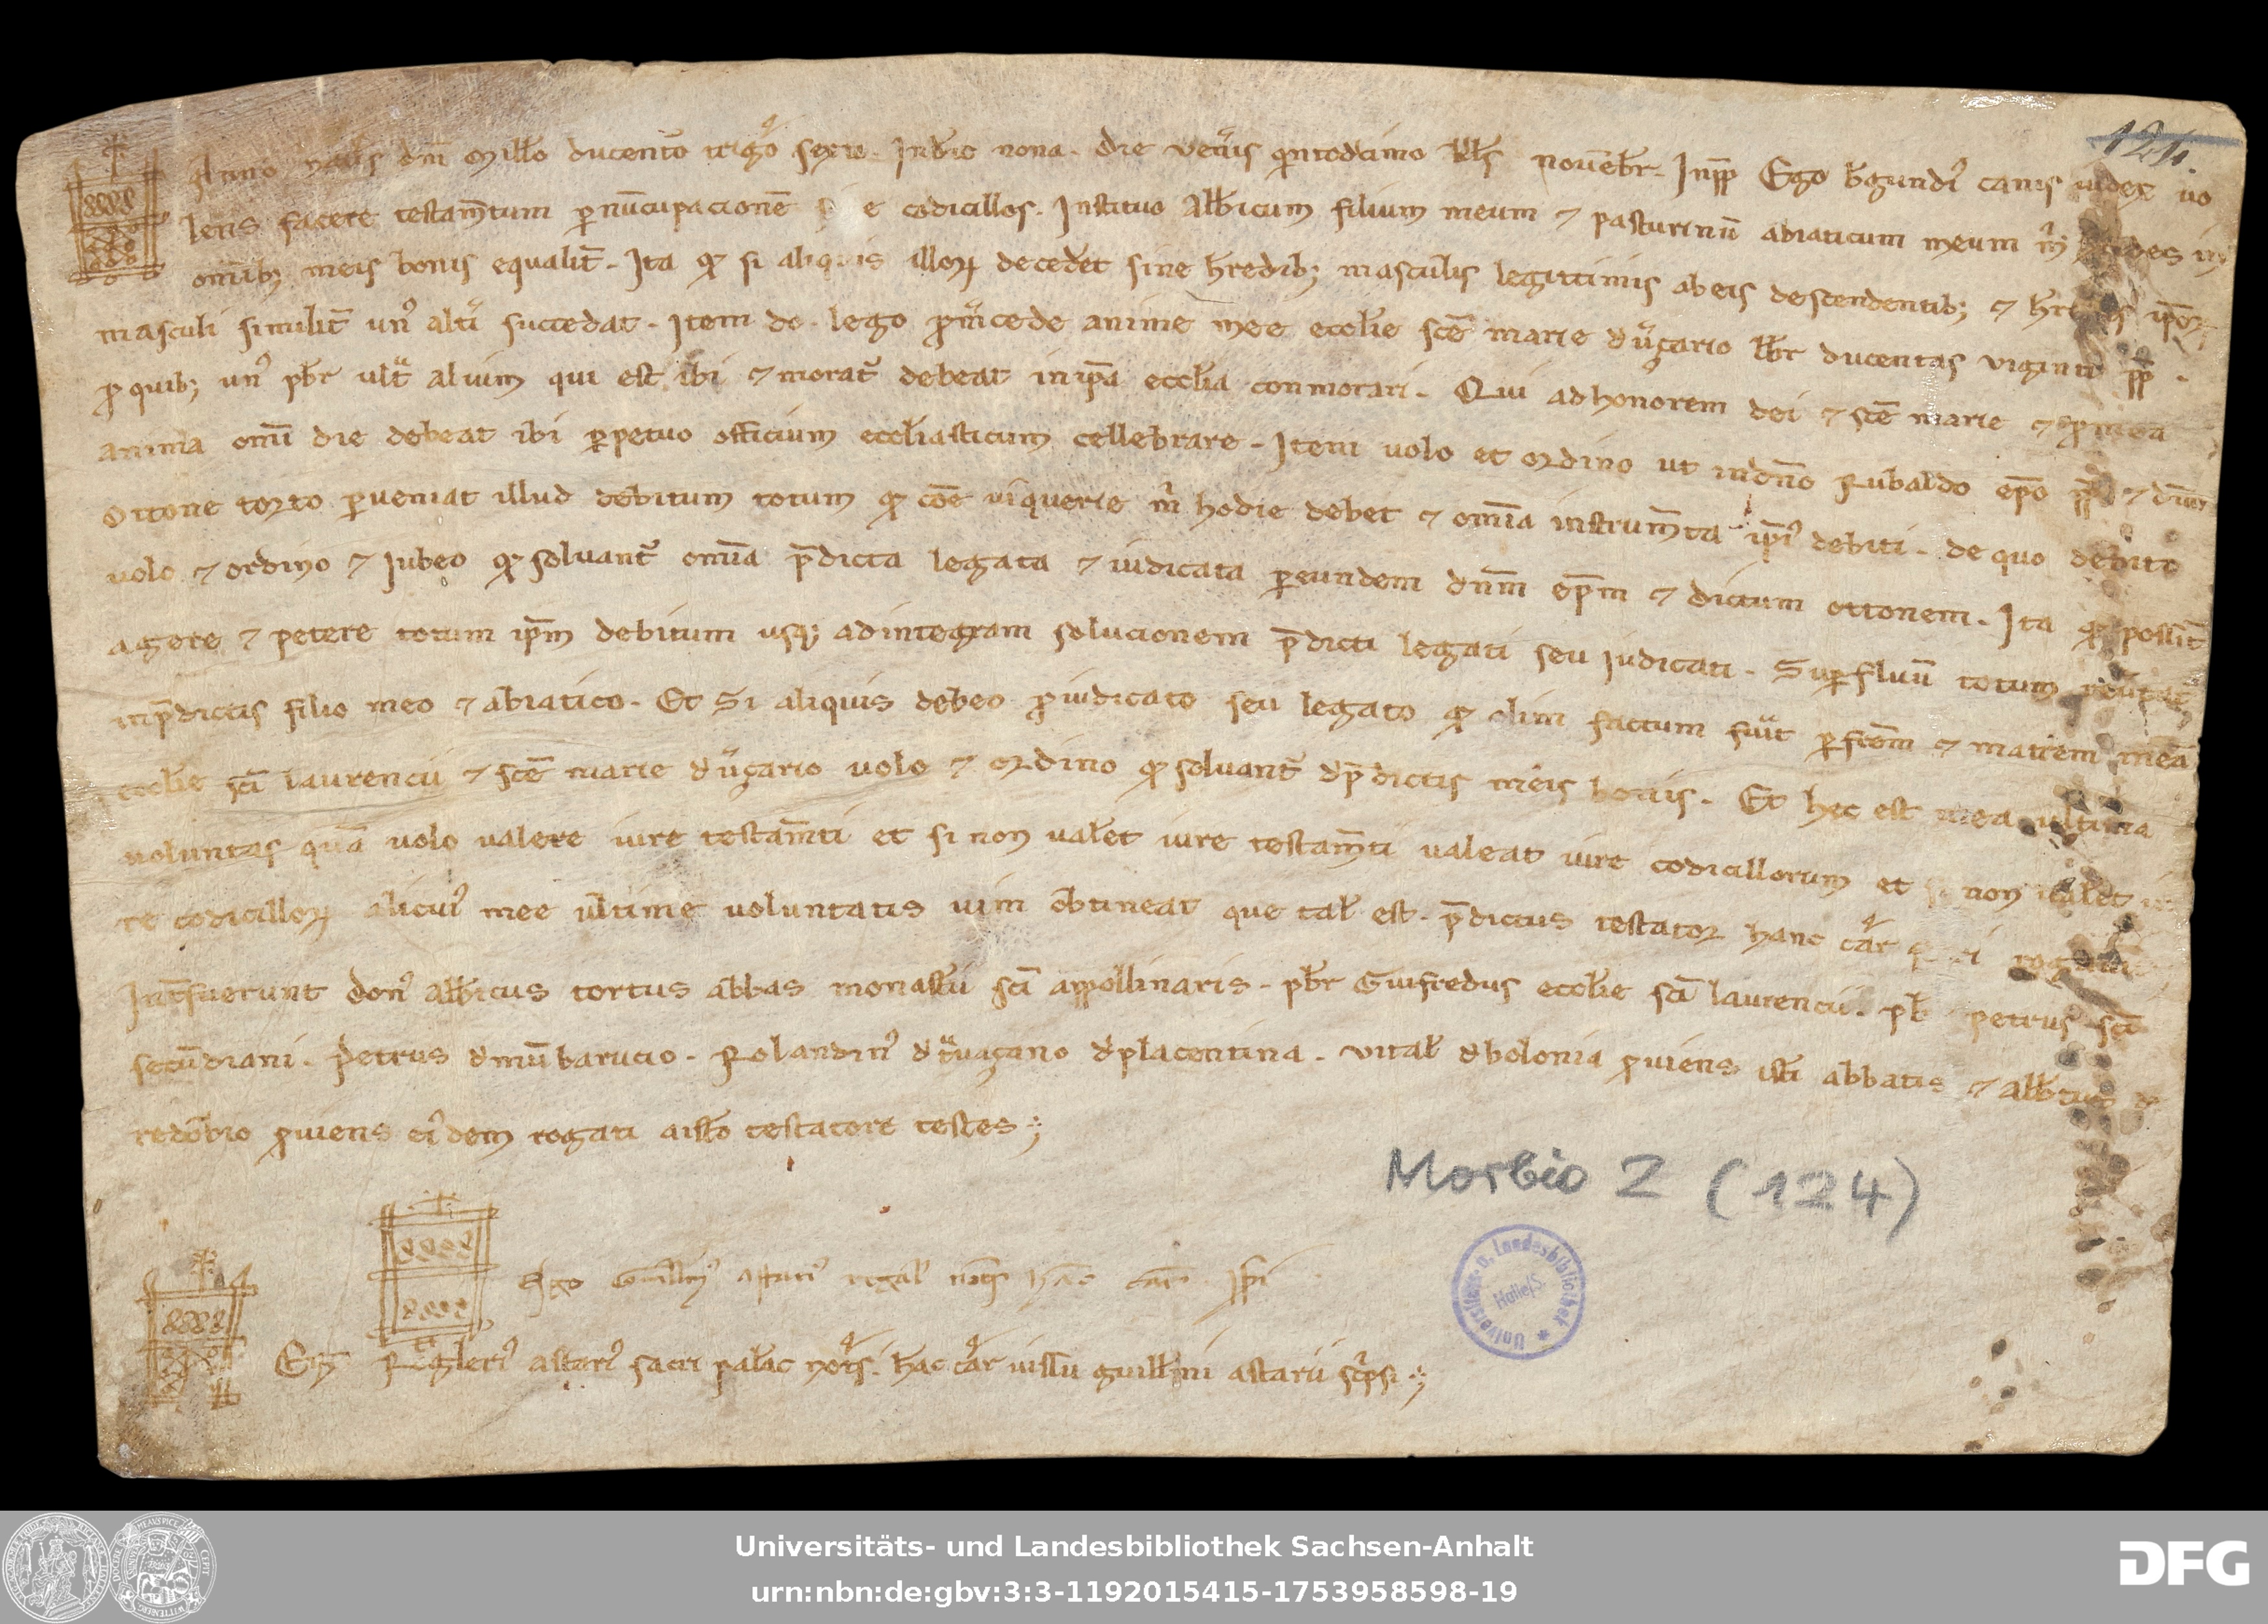 124.
Anno natal̅s dn̅i Mill̅o ducento̅ trigo̅ sexto. Indic̅ nona. die ven̅is q̅ntodecimo kl̅s nouēbr̅. In pp̅ Ego b̅gundi᷒ canis iudex uo
lens facere testam̅tum p̱ nu̅cupacione̅ codicillos. Instituo Alb̅icum filium meum ⁊ pasturinu̅ abiaticum meum m̅ in
omib; meis bonis equalit̅. Ita qd̅ si aliquis illoꝝ decedet sine h̅redib; masculis legittimis ab eis descendentib; ⁊ ip̅oꝝ
masculi similit̅ un᷒ alt̅i succedat. Item do lego ꝓ m̅cede anime mee eccl̅ie sc̅e marie d̅ u̅gario lib̅r ducentas viginti pp̅.
ꝓ quib; un᷒ pb̅r ult̅ alium qui est ibi ⁊ morat̅ debeat in ip̅a eccl̅ia conmorari. Qui ad honorem dei ⁊ sc̅e marie ⁊ ꝓ mea
anima omi̅ die debeat ibi p̱petuo officium eccl̅iasticum cellebrare. Item uolo et ordino ut in don̅o Rubaldo ep̅o pp̅ ⁊ dn̅o
Ottone torto p̱ueniat illud debitum totum qd̅ co̅e viquerie m̅ hodie debet ⁊ omi̅a instrum̅ta ip̅i᷒ debiti. de quo debito
uolo ⁊ ordino ⁊ Iubeo qd̅ soluant̅ omi̅a p̅dicta legata ⁊ iudicata p̱ eundem dn̅m ep̅m ⁊ dictum ottonem. Ita qd̅ possit
agere ⁊ petere totum ip̅m debitum usq; ad integram solucionem p̅dicti legati seu iudicati. Sup̱fluu̅ totum
in p̅dictis filio meo ⁊ abiatico. Et Si aliquis debeo ꝓ iudicato seu legato qd̅ olim factum fuit̅ p̱ fr̅em ⁊ matrem mea̅
eccl̅ie sc̅i laurencii ⁊ sc̅e marie d̅ u̅gario uolo ⁊ ordino qd̅ soluant̅ d̅ p̅dictis meis bonis. Et hec est mea ultima
uoluntas qua̅ uolo ualere iure testam̅ti et si non ualet iure testam̅ti ualeat iure codicillorum et si non ualet iu
re codicilloꝝ alicui᷒ mee ultime uoluntatis uim obtineat que tal̅ est. p̅dictus testator hanc ca̅r
Int̅fuerunt don᷒ Alb̅icus tortus abbas monast̅ii sc̅i appollinaris. pb̅r Guifredus eccl̅ie sc̅i laurencii. pb̅ petrus sc̅i
secu̅diani. Petrus d̅ mu̅barucio. Rolandin᷒ d̅ t̅uaçano d̅ placentina. vital̅ d̅ bolonia ꝓuiens ist̅i abbatis ⁊ Alb̅tus d̅
redo̅bio ꝓuiens ei᷒dem rogati a isto testatore testes
Morbio Z (124)
Ego Guillm᷒ astari᷒ regal̅ not̅s hanc car̅ sp̅i
Ego Rugleri᷒ astari᷒ sacri palac̅ not̅s. hac ca̅r iussu guill̅mi astarii sc̅psi
Universitäts- u. Landesbibliothek Halle/S.
Universitäts- und Landesbibliothek Sachsen-Anhalt
urn:nbn:de:gbv:3:3-1192015415-1753958598-19
DFG